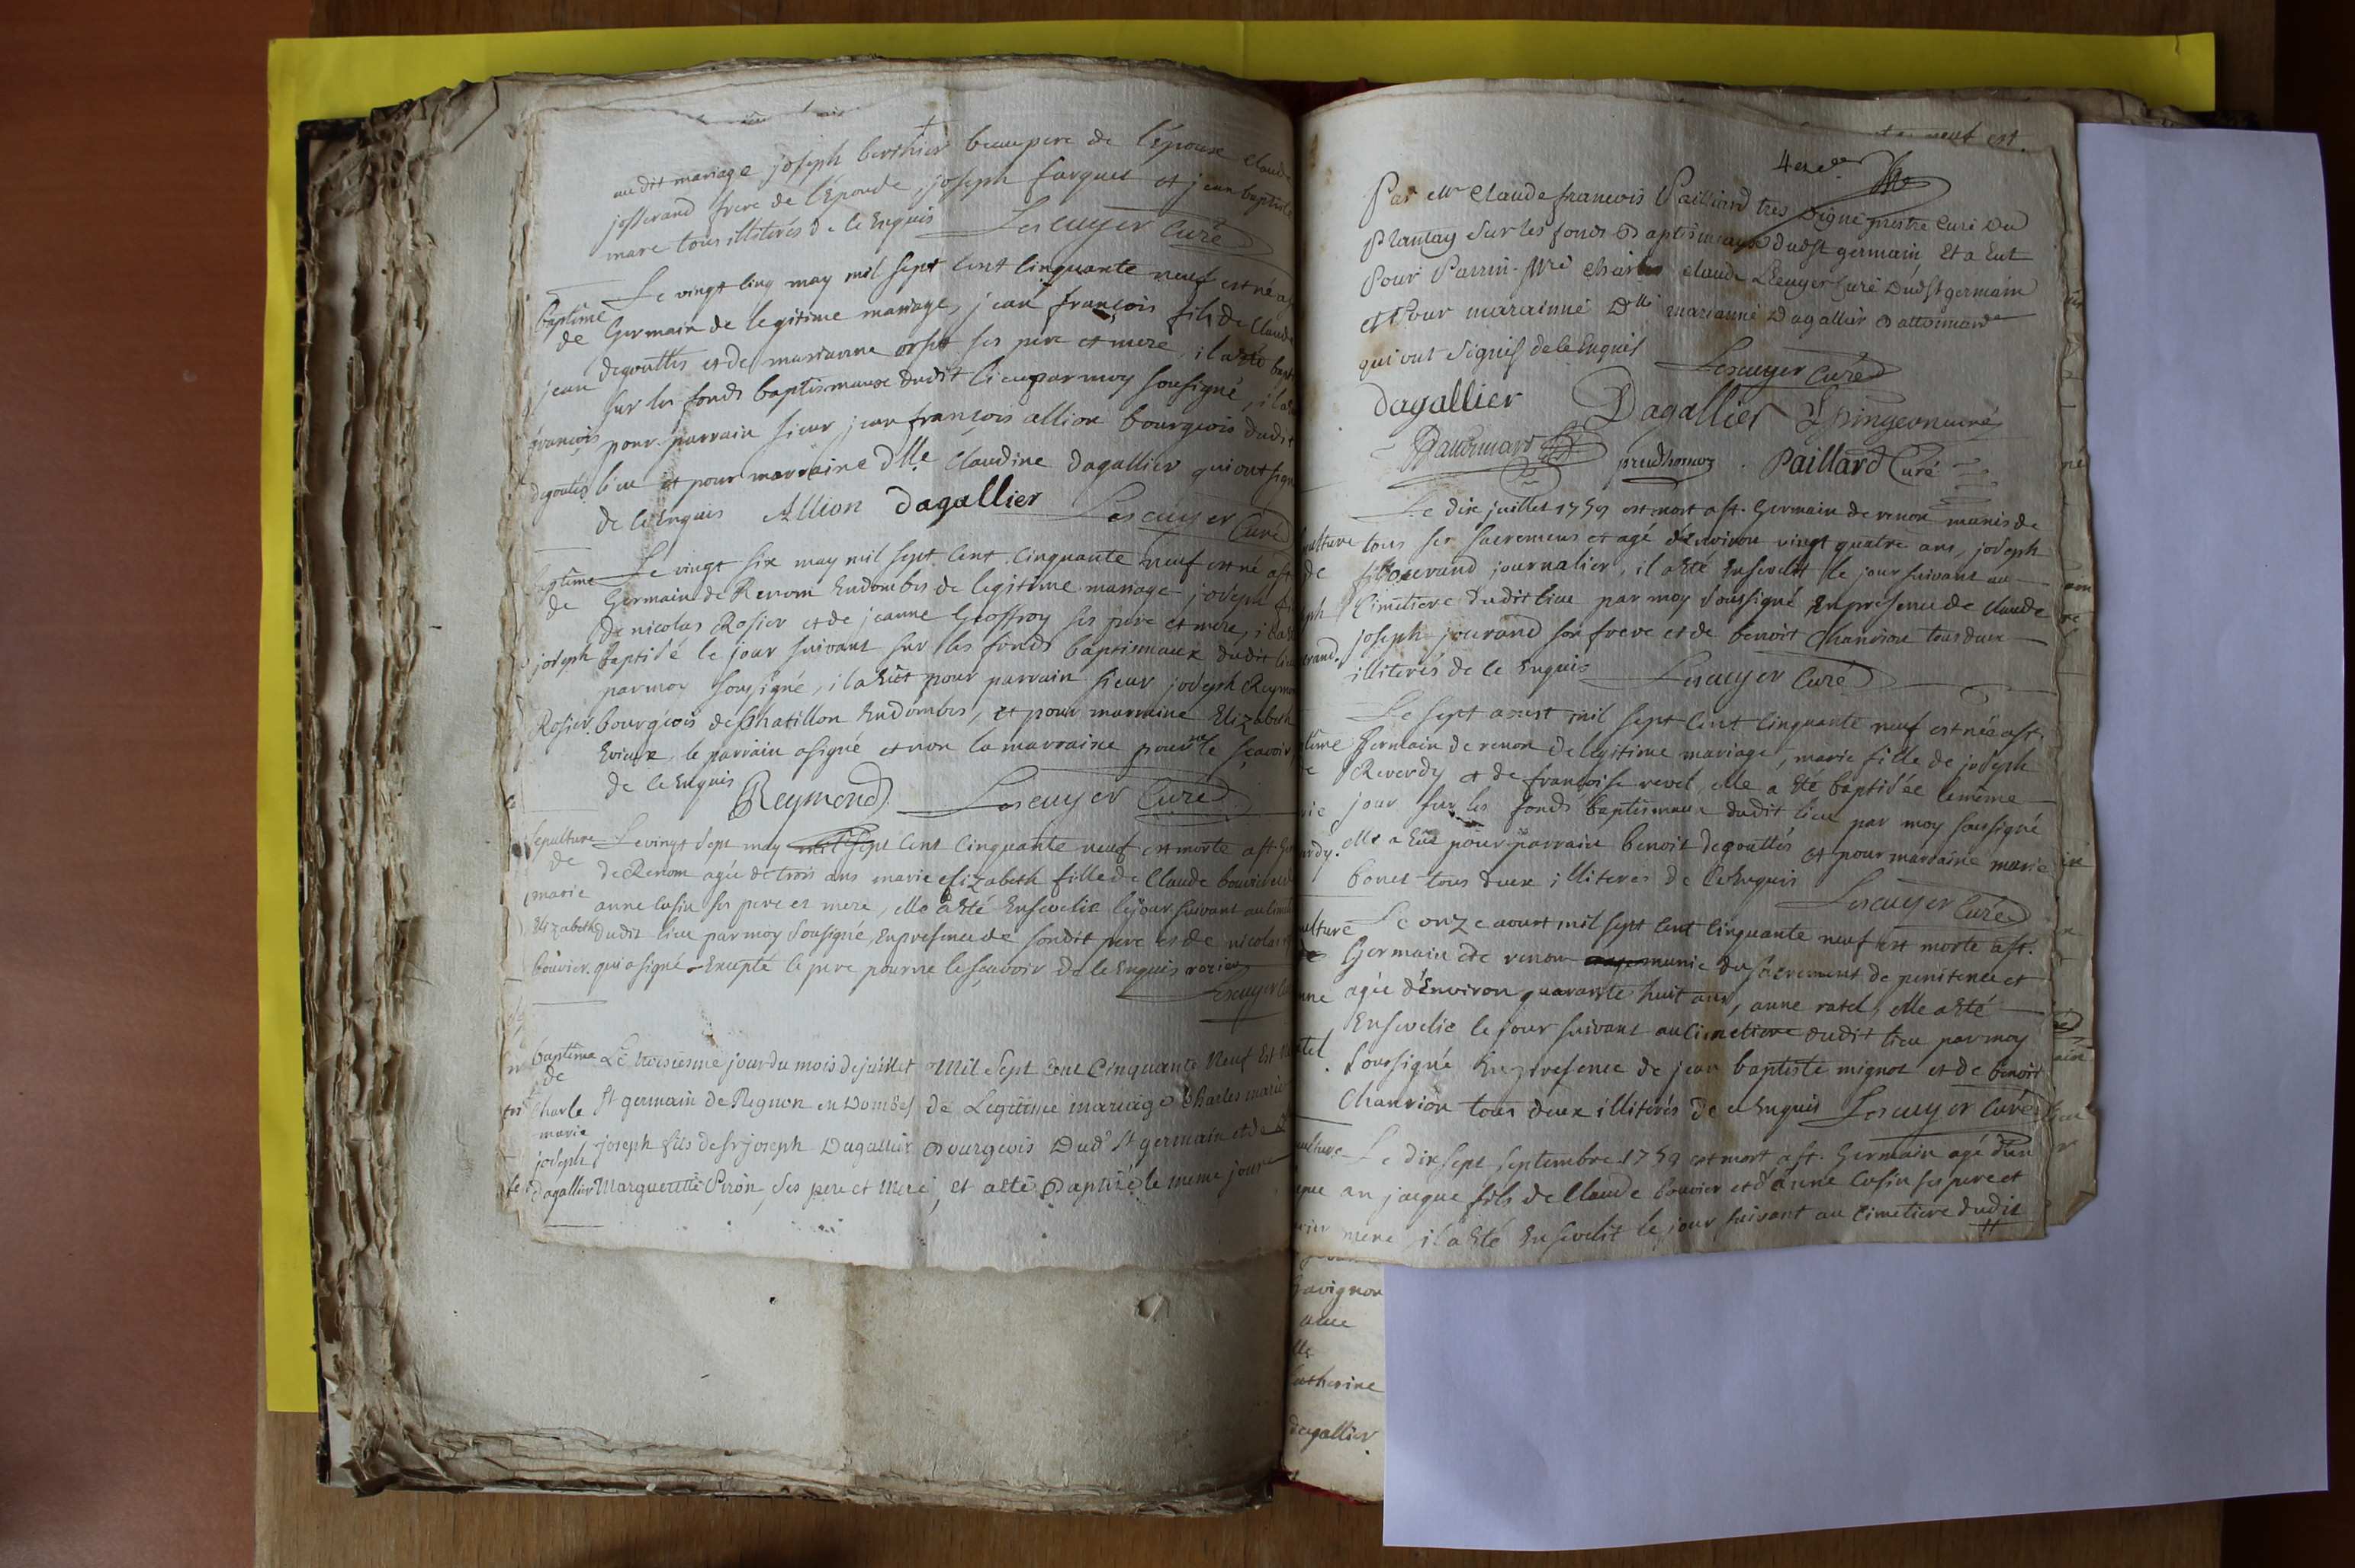 audit mariage joseph berthier beaupere de l'Epouse Claude
josserand frere de l'Epouse, joseph farguet et jean baptiste
mare tous illiterés de ce Enquis Lescuyer Curé
Le vingt cinq may mil sept cent cinquante neuf est né a
baptême
de Germain de legitime mariage, jean françois fils de Claude
jean degouttes et de marianne orset ses pere et mere, il a été bapt
sur les fonds baptismaux dudit lieu par moy soussigné, il a
françois pour parrain sieur jean françois allion bourgeois dudit
degoutes lieu et pour marraine Dlle Claudine dagallier qui ont sign
de ce Enquis Allion dagallier Lescuyer Curé
baptême Le vingt six may mil sept cent cinquante neuf est né a st
de Germain de Renom En dombes de legitime mariage joseph fi
de nicolas Rosier et de jeanne Geoffroy ses pere et mere, il a
joseph baptisé le jour suivant sur les fonds baptismaux dudit lieu
par moy soussigné, il a Eut pour parrain sieur joseph Reymon
Rosier bourgeois de Chatillon En dombes, et pour marraine Elizabeth
Evieux, le parrain a signé et non la marraine pour ne le sçavoir
de ce Enquis Reymond Lescuyer Curé
Sepulture Le vingt sept may mil sept cent cinquante neuf est morte a st Ger
de de Renom agée de trois ans marie elizabeth fille de Claude bouvier et d
marie anne cusin ses pere et mere, elle a été Ensevelie le jour suivant au cimet
Elizabeth dudit lieu par moy soussigné, En presence de sondit pere et de nicolas
bouvier. qui a signé Excepté le pere pour ne le sçavoir de ce Enquis rozier
Lescuyer Cu
baptême Le troisieme jour du mois de juillet Mil Sept Cent Cinquante Neuf Est N
de
Charle St germain de Regnon en Dombes de Legitime mariage Charles marie
marie
joseph joseph fils de sr joseph Dagallier Bourgeois Dudt St germain et de
dagallier Margueritte Piron, ses pere et Mere, et a été Baptisé le meme jour
Par Mr Claude françois Pailliard tres Digne prestre Curé Du
Plantay Sur les fonds Baptismaux dudst germain Et a Eut
Pour Parrin Mre Charles claude Lscuyer Curé Dudst germain
et Pour marainne Dlle marianne Dagallier
qui ont signés de ce Enquis Lescuyer Curé
dagallier Dagallier
prudhomoz Paillard Curé
Le dix juillet 1759 est mort a st. Germain de renon munis de
ulture tous ses sacremens et agé d'Environ vingt quatre ans, joseph
de journalier, il a été Ensevelit le jour suivant au
ph Cimetiere dudit lieu par moy soussigné En presence de claude
joseph son frere et de benoit Chanrion tous deux
rand. illiterés de ce Enquis Lescuyer Curé
Le sept aoust mil sept cent cinquante neuf est née a st.
tême Germain de renon de legitime mariage, marie fille de joseph
Reverdy et de françoise revel, elle a été baptisée le même
jour sur les fonds baptismaux dudit lieu par moy soussigné
rdy. elle a Eut pour parrain benoit degouttes et pour marraine marie
bonet tous deux illiterés de ce Enquis Lescuyer Curé
ulture Le onze aoust mil sept cent cinquante neuf est morte a st.
Germain de renon munie du sacrement de penitence et
nne agée d'Environ quarante huit ans, anne ratel, elle a été
Ensevelie le jour suivant au cimetiere dudit lieu par moy
tel. soussigné En presence de jean baptiste mignot et de benoit
Chanrion tous deux illiterés de ce Enquis Lescuyer Curé
ulture Le dix sept septembre 1759 est mort a st. Germain agé d'un
an jacque fils de Claude bouvier et d'anne cusin ses pere et
mere il a été Ensevelit le jour suivant au Cimetiere dudit
ravignon
catherine
dagallier